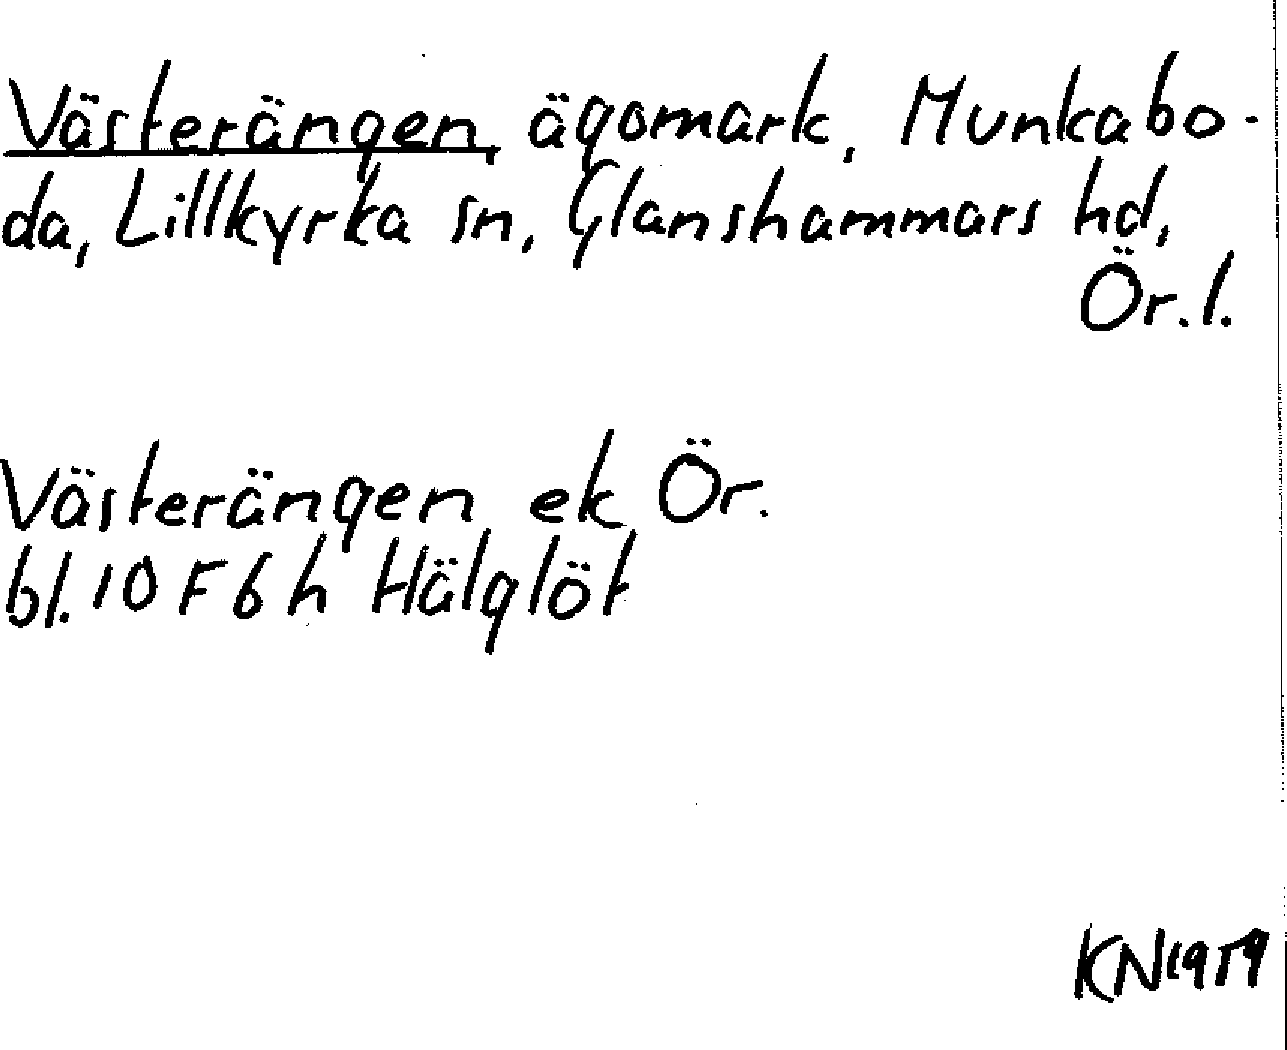 Västerängen, ägomark, Munkabo-
da, Lillkyrka sn, Glanshammars hd,
Ör. l.
Västerängen ek Ör.
bl. 10 F 6 h Hälglöt